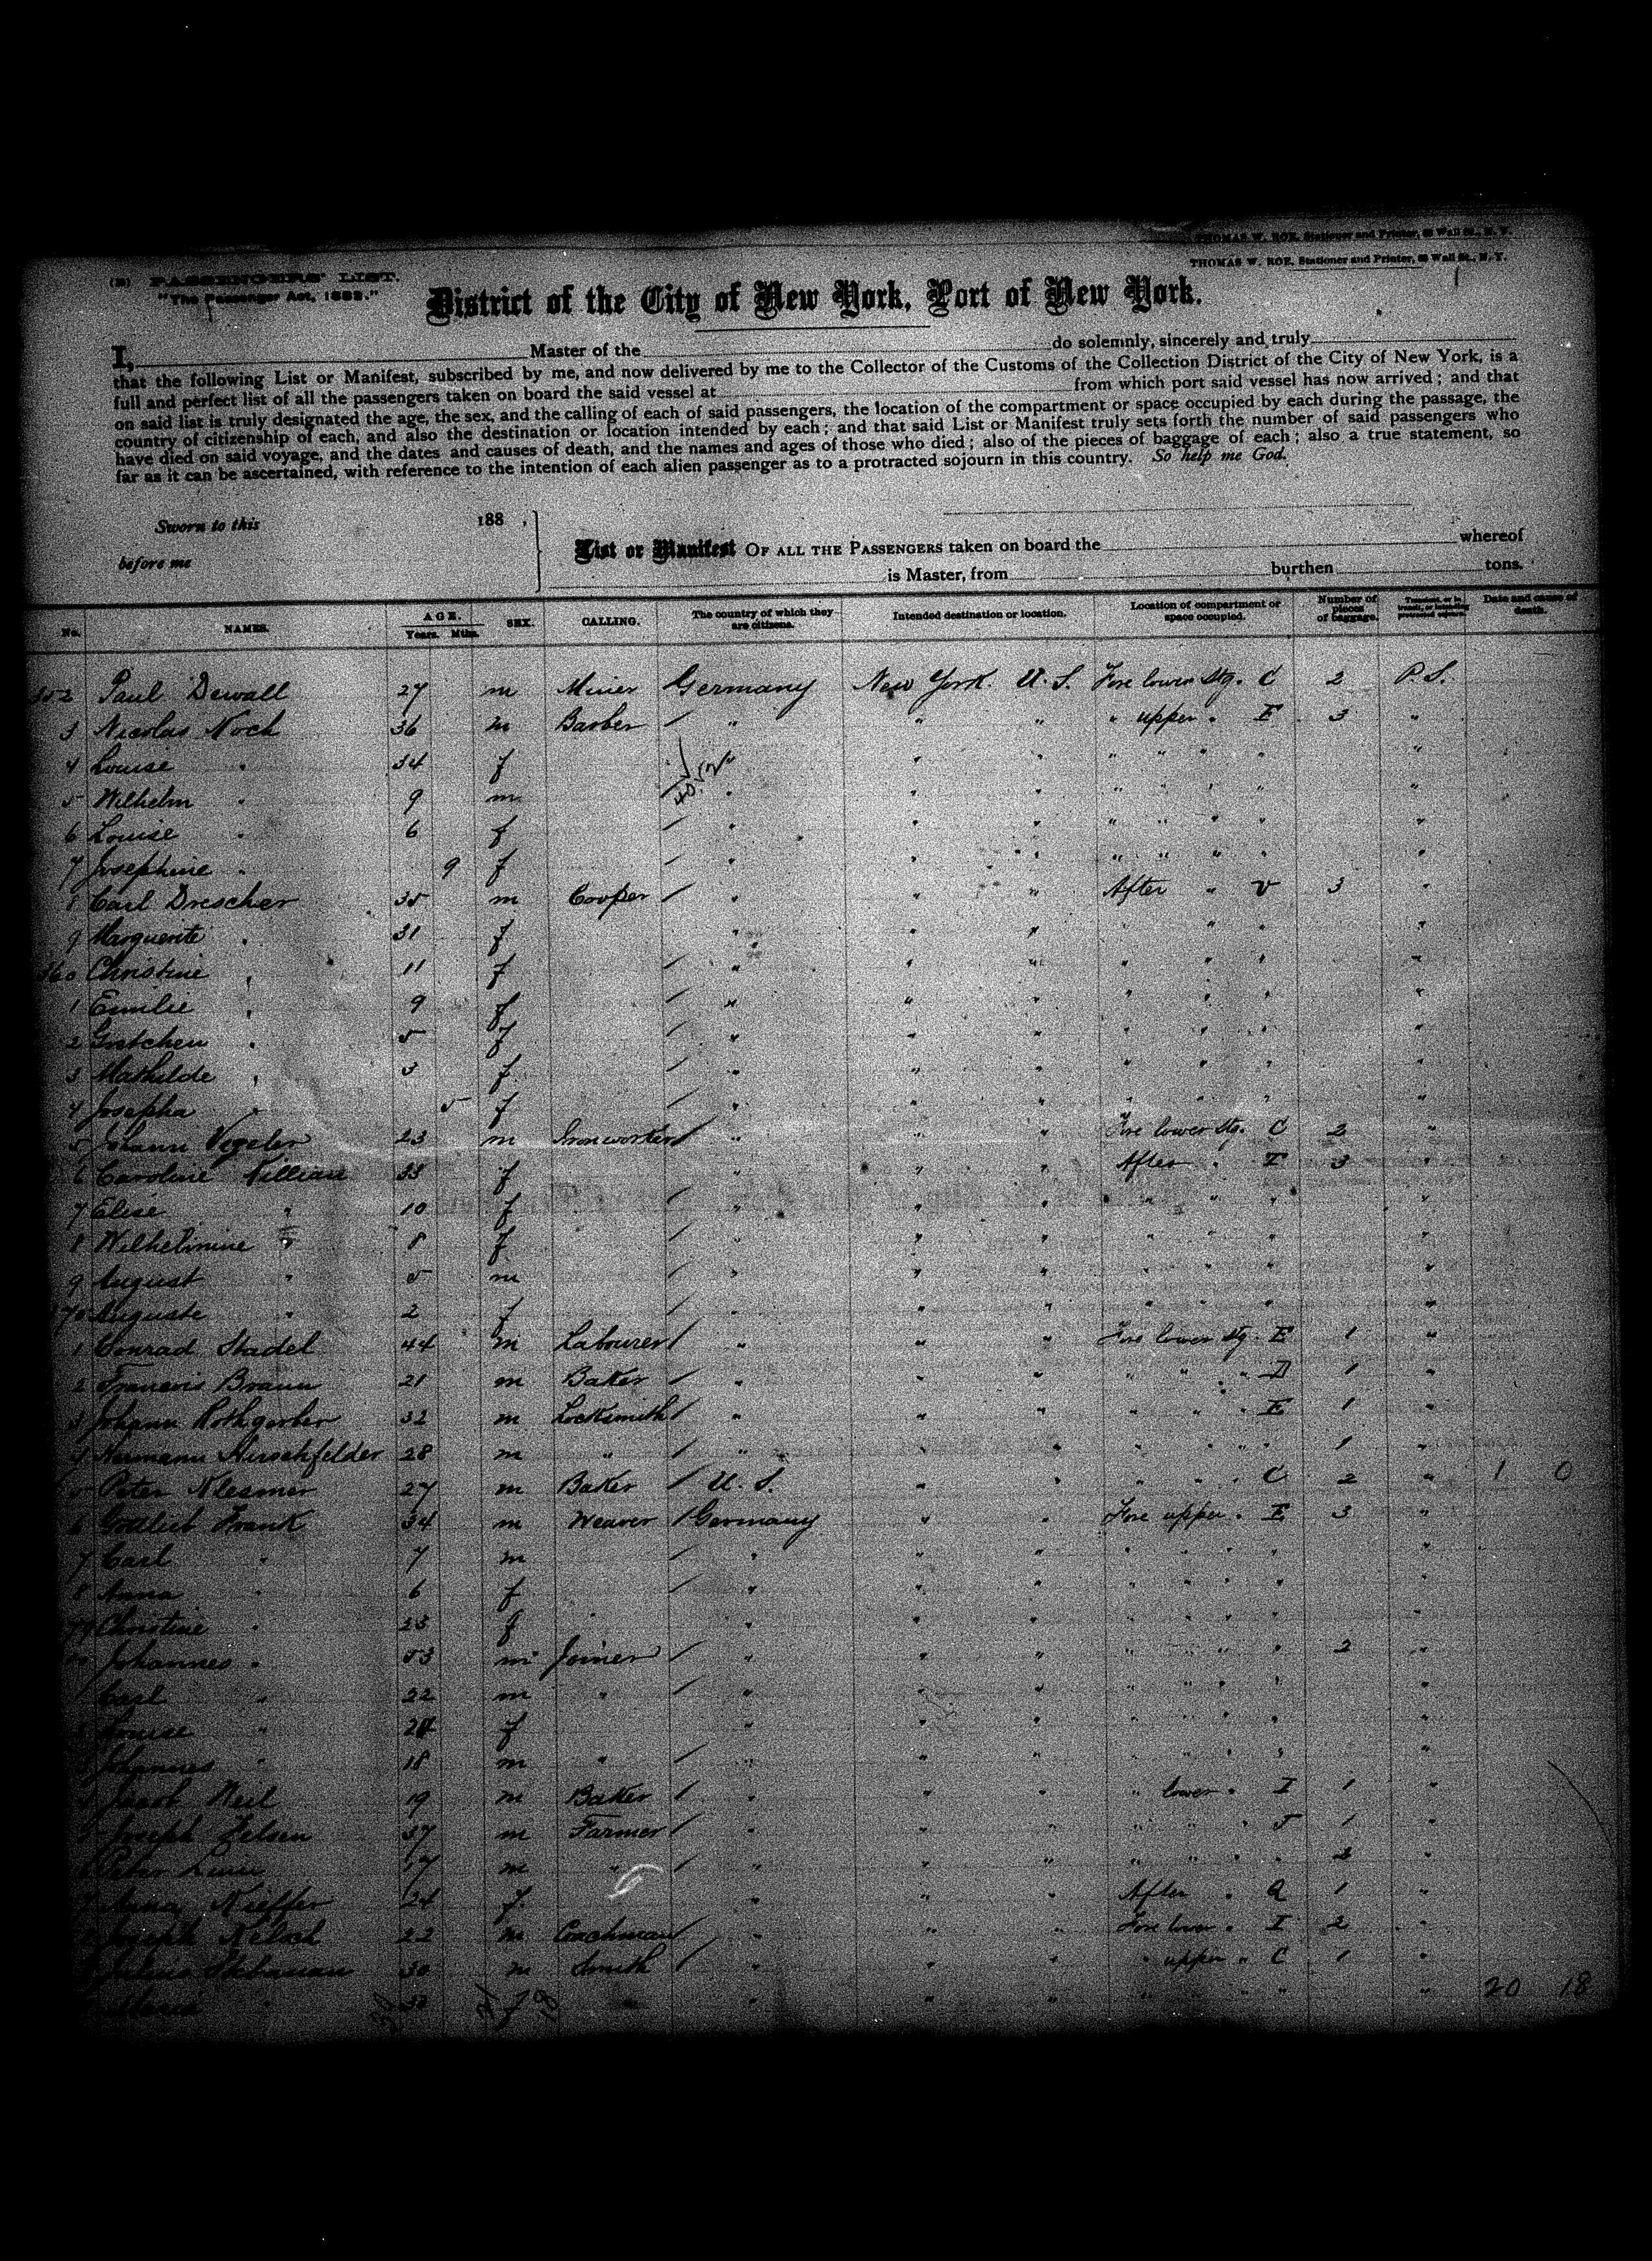 THOMAS W. ROE, Stationer and Printer, Wall St., N. Y.
THOMAS W. ROE, Stationer and Printer, Wall St., N. Y.
PASSENGERS' LIST.
"The Passenger Act, 1882."
District of the City of New York, Port of New York.
I, Master of the do solemnly, sincerely and truly
that the following List or Manifest, subscribed by me, and now delivered by me to the Collector of the Customs of the Collection District of the City of New York, is a
full and perfect list of all the passengers taken on board the said vessel at from which port said vessel has now arrived; and that
on said list is truly designated the age, the sex, and the calling of each of said passengers, the location of the compartment or space occupied by each during the passage, the
country of citizenship of each, and also the destination or location intended by each; and that said List or Manifest truly sets forth the number of said passengers who
have died on said voyage, and the dates and causes of death, and the names and ages of those who died; also of the pieces of baggage of each; also a true statement, so
far as it can be ascertained, with reference to the intention of each alien passenger as to a protracted sojourn in this country. So help me God.
Sworn to this 188 ,
before me
List or Manifest OF ALL THE PASSENGERS taken on board the whereof
is Master, from burthen tons.
No. NAMES. AGE. Years. Mths. SEX. CALLING. The country of which they are citizens. Intended destination or location. Location of compartment or space occupied. Number of pieces of baggage. Transient, or in transit, or intending protracted sojourn. Date and cause of death.
352 Paul Dewall 27 m Miner Germany New York. U.S. Fore lower Stg. C 2 P.S.
3 Nicolas Noch 36 m Barber " " " " upper " E 3 "
4 Louise " 34 f " " " " " " " "
5 Wilhelm " 9 m " " " " " " " "
6 Louise " 6 f " " " " " " " "
7 Josephine " 9 f " " " " " " " "
8 Carl Drescher 35 m Cooper " " " After " V 3 "
9 Marguerite " 31 f " " " " " "
360 Christine " 11 f " " " " " " "
1 Emilie " 9 f " " " " " " "
2 Gretchen " 5 f " " " " " " "
3 Mathilde " 3 f " " " " " " "
4 Josepha " 5 f " " " " " " "
5 Johann Vogeler 23 m Ironworker " " " Fore lower Stg. C 2 "
6 Caroline Killian 33 f " " " After " I 3 "
7 Elise " 10 f " " " " " " "
8 Wilhelmine " 8 f " " " " " " "
9 August " 5 m " " " " " " "
70 Auguste " 2 f " " " " " " "
1 Conrad Stadel 44 m Labourer " " " Fore lower Stg. E 1 "
2 Francois Braun 21 m Baker " " " " " " D 1 "
3 Johann Rothgerber 32 m Locksmith " " " " " " E 1 "
4 Hermann Hirschfelder 28 m " " " " " " " " 1 "
5 Peter Klesmer 27 m Baker U.S. " " " " " C 2 " 1 0
6 Gottlieb Frank 34 m Weaver Germany " " Fore upper " E 3 "
7 Carl " 7 m " " " " " " " "
8 Anna " 6 f " " " " " " " "
79 Christine " 23 f " " " " " " " "
Johannes " 53 m Joiner " " " " " " 2 "
Carl " 22 m " " " " " " " "
Louise " 24 f " " " " " " "
Johannes " 18 m " " " " " " " "
Jacob Weil 19 m Baker " " " " lower " I 1 "
Joseph Zelsen 37 m Farmer " " " " " " J 1 "
Peter 17 m " " " " " " " " "
Anna Kieffer 24 f. " " " After " Q 1 "
Joseph 22 m Coachman " " " Fore lower " I 2 "
30 m Smith " " " " upper " C 1 "
Maria " f " " " " " " " " 20 18